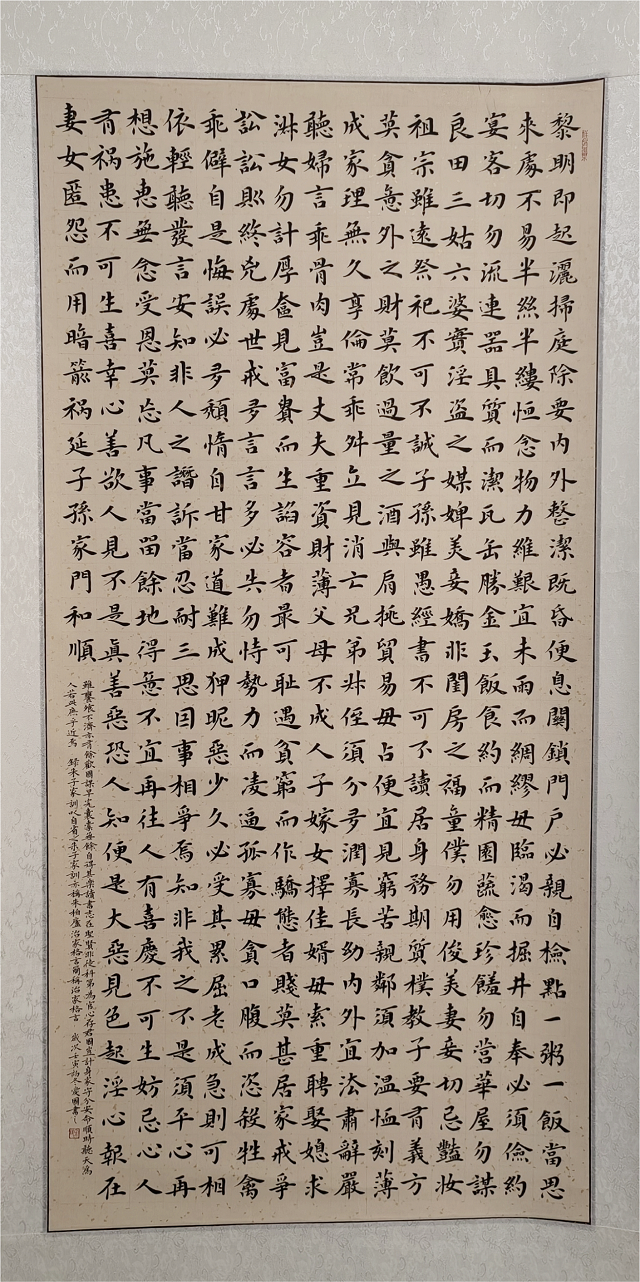 黎明即起灑掃庭除要内外整潔既昏便息關鎖門戶必親自檢點一粥一飯當思
來處不易半絲半縷恒念物力維艱宜未雨而綢繆毋臨渴而掘井自奉必須儉約
宴客切勿流連器具質而潔瓦缶勝金玉飯食約而精園蔬愈珍饈勿營華屋勿謀
良田三姑六婆實淫盗之媒婢美妾嬌非閨房之福童僕勿用俊美妻妾切忌豔妝
祖宗雖遠祭祀不可不誠子孫雖愚經書不可不讀居身務期質樸教子要有義方
莫貪意外之財莫飲過量之酒與肩挑貿易毋占便宜見窮苦親鄰須加温恤刻薄
成家理無久享倫常乖舛立見消亡兄弟叔侄須分多潤寡長幼内外宜法肅辭嚴
聽婦言乖骨肉豈是丈夫重資財薄父母不成人子嫁女擇佳婿毋索重聘娶媳求
淑女勿計厚奩見富貴而生諂容者最可耻遇貧窮而作驕態者賤莫甚居家戒爭
訟訟則終兇處世戒多言言多必失勿恃勢力而凌逼孤寡毋貪口腹而恣殺牲禽
乖僻自是悔誤必多頹惰自甘家道難成狎昵惡少久必受其累屈老成急則可相
依輕聽發言安知非人之譖訴當忍耐三思因事相爭焉知非我之不是須平心再
想施惠無念受恩莫忘凡事當留餘地得意不宜再往人有喜慶不可生妒忌心人
有祸患不可生喜幸心善欲人見不是真善惡恐人知便是大惡見色起淫心報在
妻女匿怨而用暗箭祸延子孫家門和順
雖饔飧不濟亦有餘歡國課早完囊橐無餘自得其樂讀書志在聖賢非徒科第為官心存君國豈計身家守分安命順時聽天為
人若此庶乎近焉 錄朱子家訓以自省之朱子家訓亦稱朱柏廬治家格言簡稱治家格言 歲次壬寅初冬愛國書之